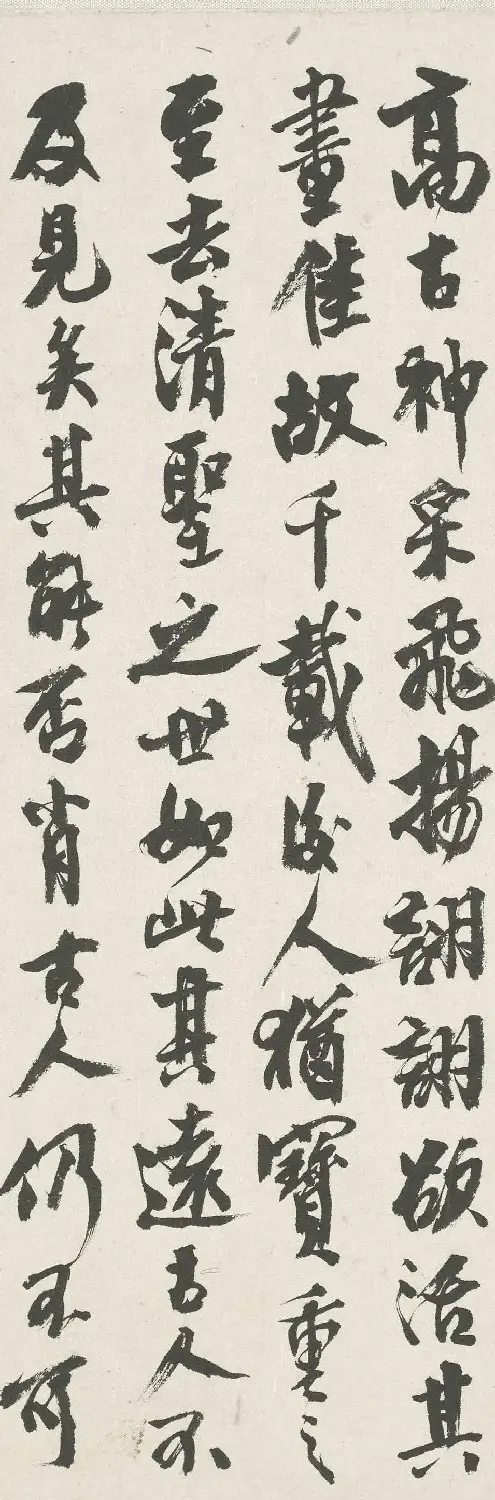 高古神采飛揚詡詡欲活其
畫佳故千載後人猶寶重之
至去清聖之世如此其遠古人不
及見矣其能否肖古人仍不可